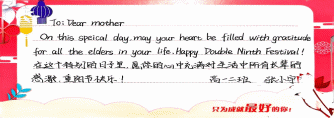 To: Dear mother
On this speical day, may your heart be filled with gratitude
for all the elders in your life. Happy Double Ninth Festival!
在这个特别的日子里,愿你的心中充满对生活中所有长辈的
感激,重阳节快乐! 高一二班 张小宇
只为成就最好的你!